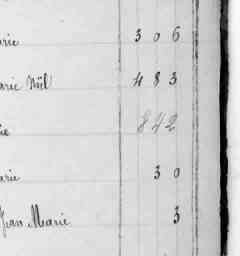 arie 306
arie Noël 483
ie 842
arie 30
Jean Marie 3